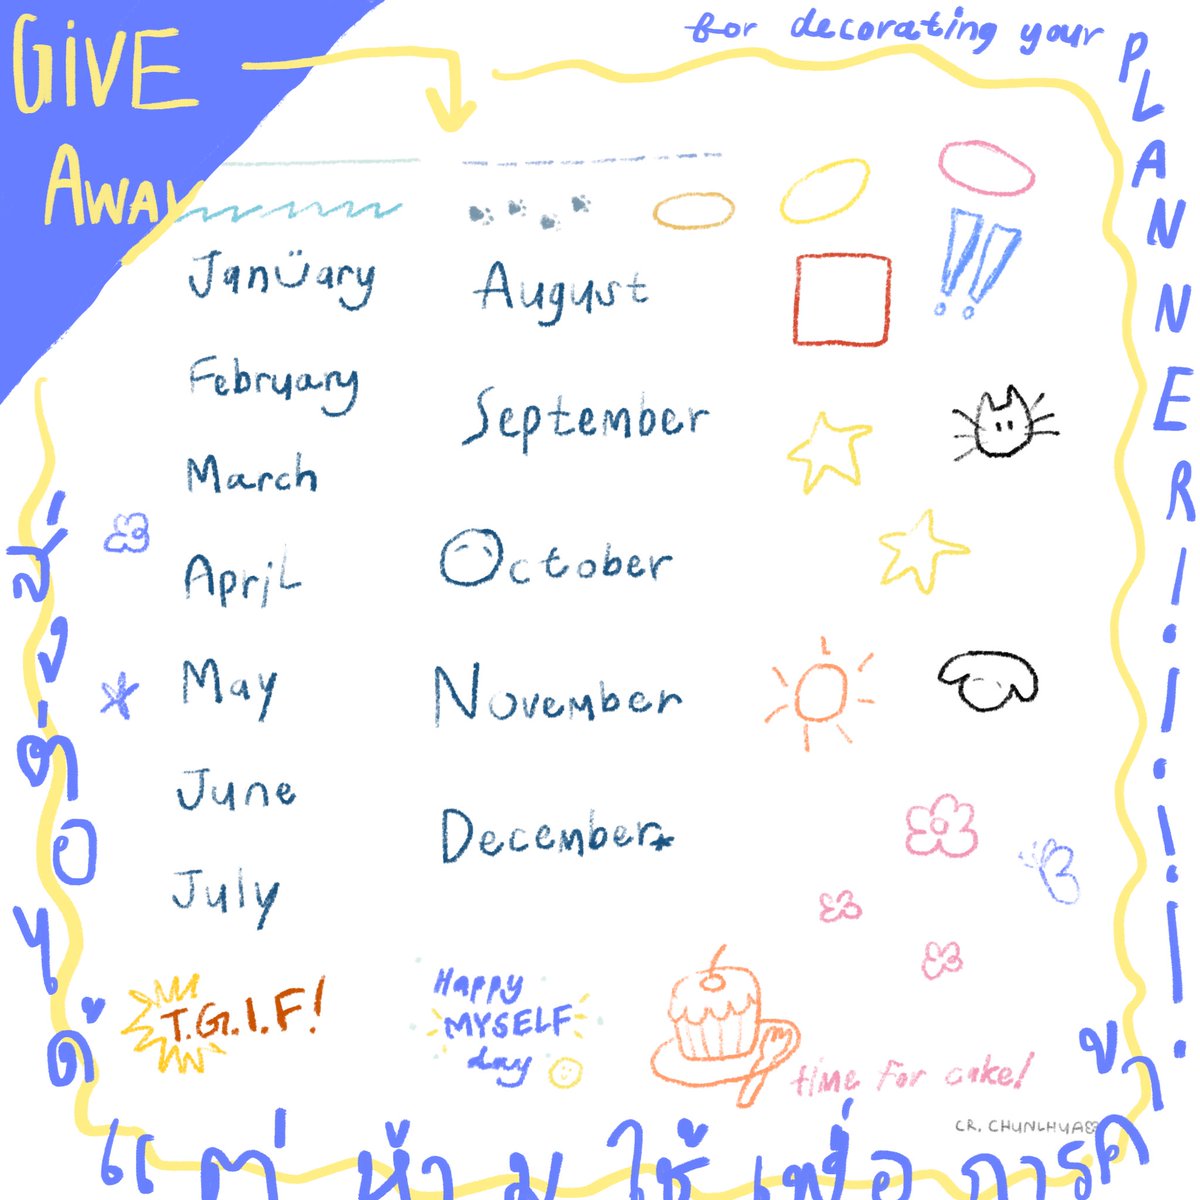 GiVE
AWAY
for decorating your
PLANNER!!!!!
Janüary
February
March
April
May
June
July
August
September
October
November
December*
!!
T.G.I.F!
Happy
MYSELF
day
time for cake!
CR. CHUNLHUA
ส่งต่อไได้
แต่ห้ามใช้เพื่อการค้า
ข